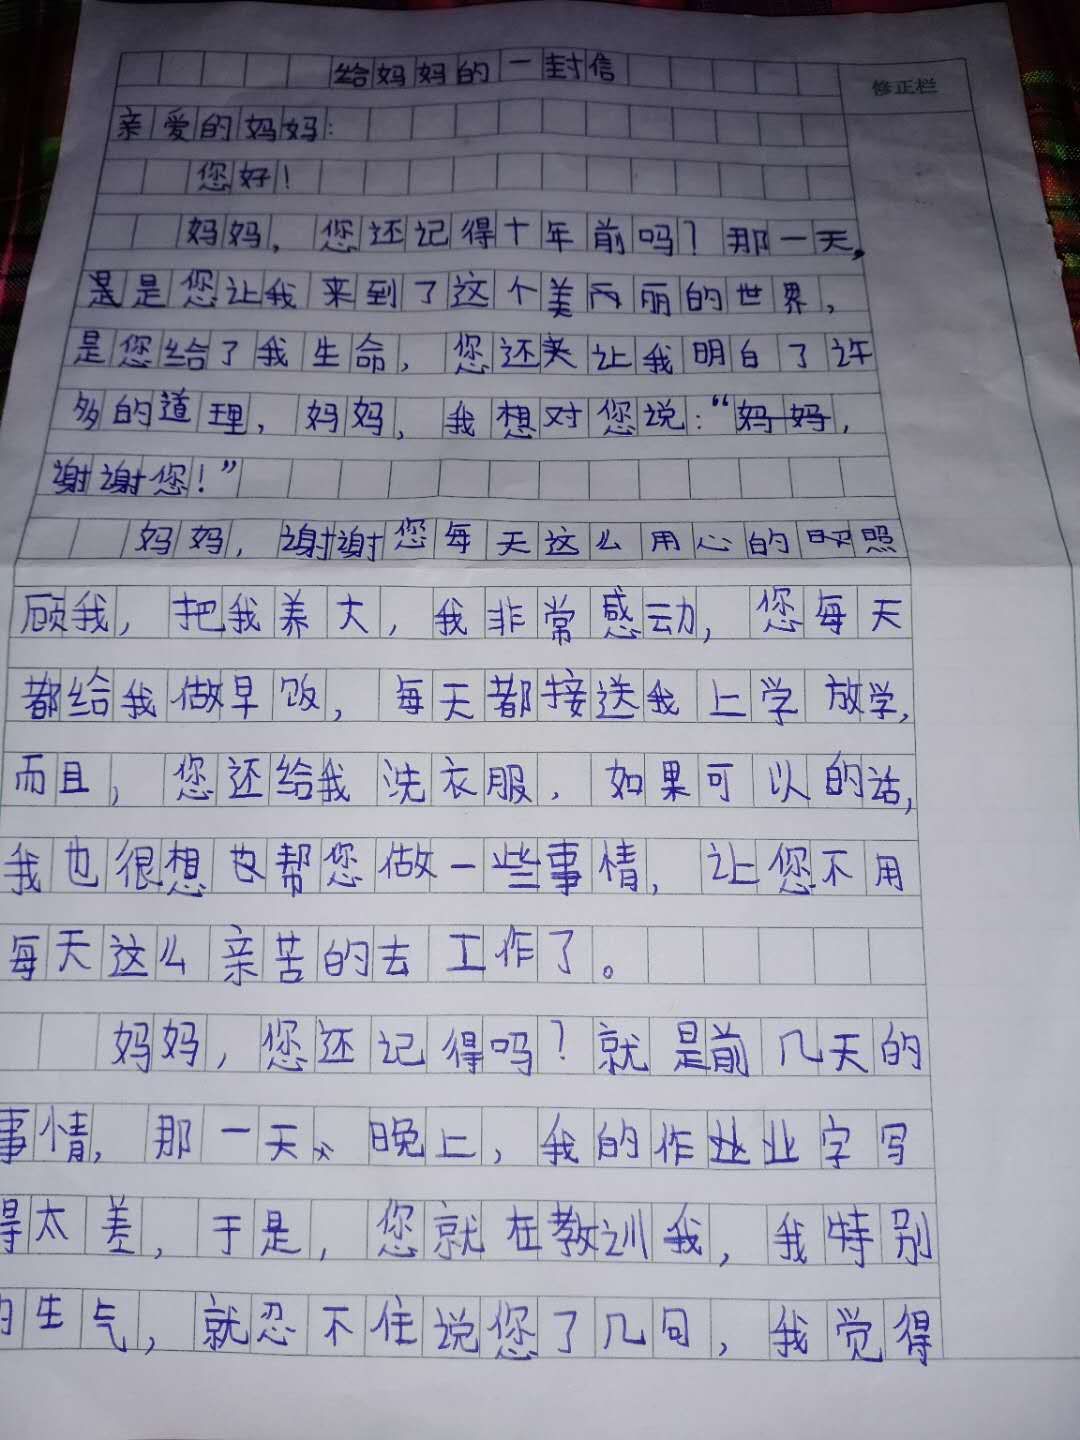 给妈妈的一封信
修正栏
亲爱的妈妈:
您好!
妈妈,您还记得十年前吗?那一天,
是是您让我来到了这个美丽的世界,
是您给了我生命,您还让我明白了许
多的道理,妈妈,我想对您说:“妈妈,
谢谢您!”
妈妈,谢谢您每天这么用心的照
顾我,把我养大,我非常感动,您每天
都给我做早饭,每天都接送我上学放学,
而且,您还给我洗衣服,如果可以的话,
我也很想也帮您做一些事情,让您不用
每天这么亲苦的去工作了。
妈妈,您还记得吗?就是前几天的
事情,那一天、晚上,我的作业字写
得太差,于是,您就在教训我,我特别
的生气,就忍不住说您了几句,我觉得